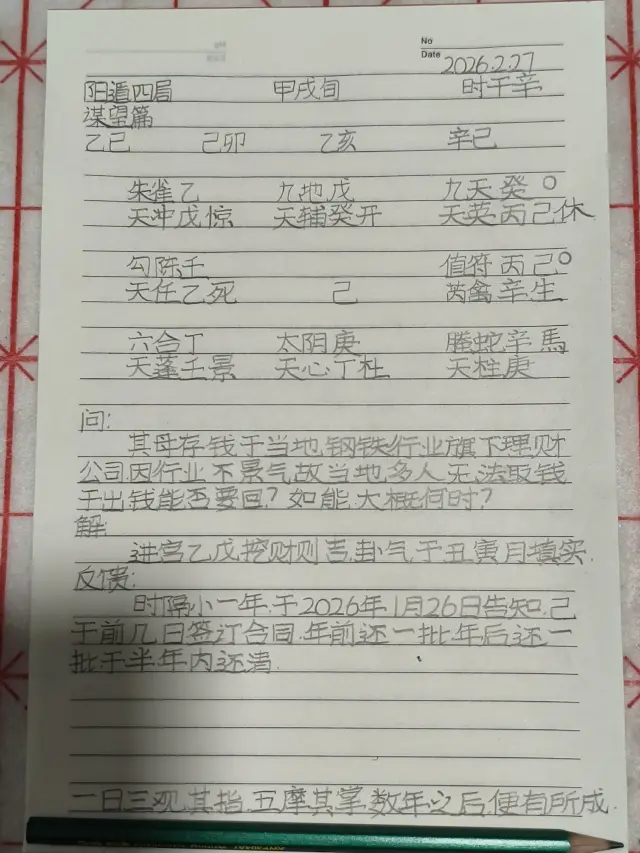 No
Date 2026.2.27
阳遁四局 甲戌旬 时干辛
谋望篇
乙巳 己卯 乙亥 辛巳
朱雀乙 九地戊 九天癸○
天冲戊惊 天辅癸开 天英丙己休
勾陈壬 值符丙己○
天任乙死 己 芮禽辛生
六合丁 太阴庚 螣蛇辛馬
天蓬壬景 天心丁杜 天柱庚
问:
其母存钱于当地钢铁行业旗下理财
公司因行业不景气故当地多人无法取钱
于出钱能否要回?如能大概何时?
解:
进宫乙戊挖财则吉.卦气于丑寅月填实.
反馈:
时隔小一年.于2026年1月26日告知.己
于前几日签订合同.年前还一批年后还一
批于半年内还清.
一日三观其指.五摩其掌.数年之后便有所成.